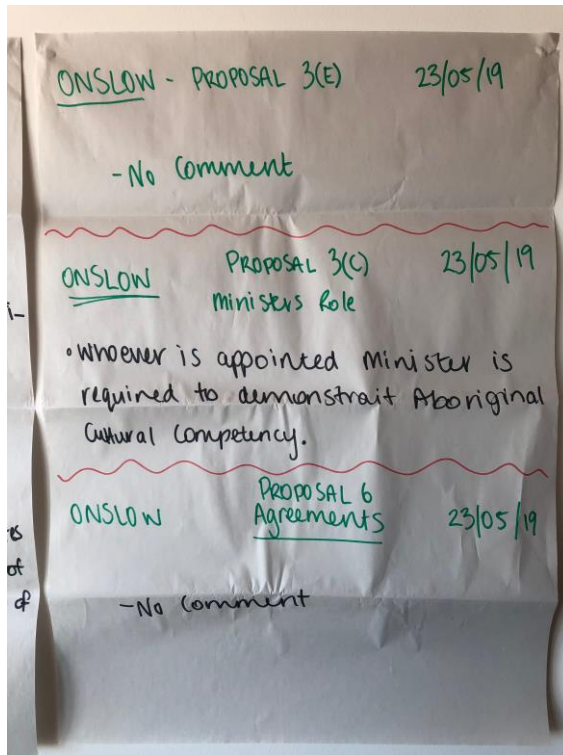 ONSLOW - PROPOSAL 3(E) 23/05/19
-No Comment
ONSLOW PROPOSAL 3(C) 23/05/19
Ministers Role
• Whoever is appointed Minister is
required to demonstrait Aboriginal
Cultural Competency.
ONSLOW PROPOSAL 6 23/05/19
Agreements
-No Comment
of
of